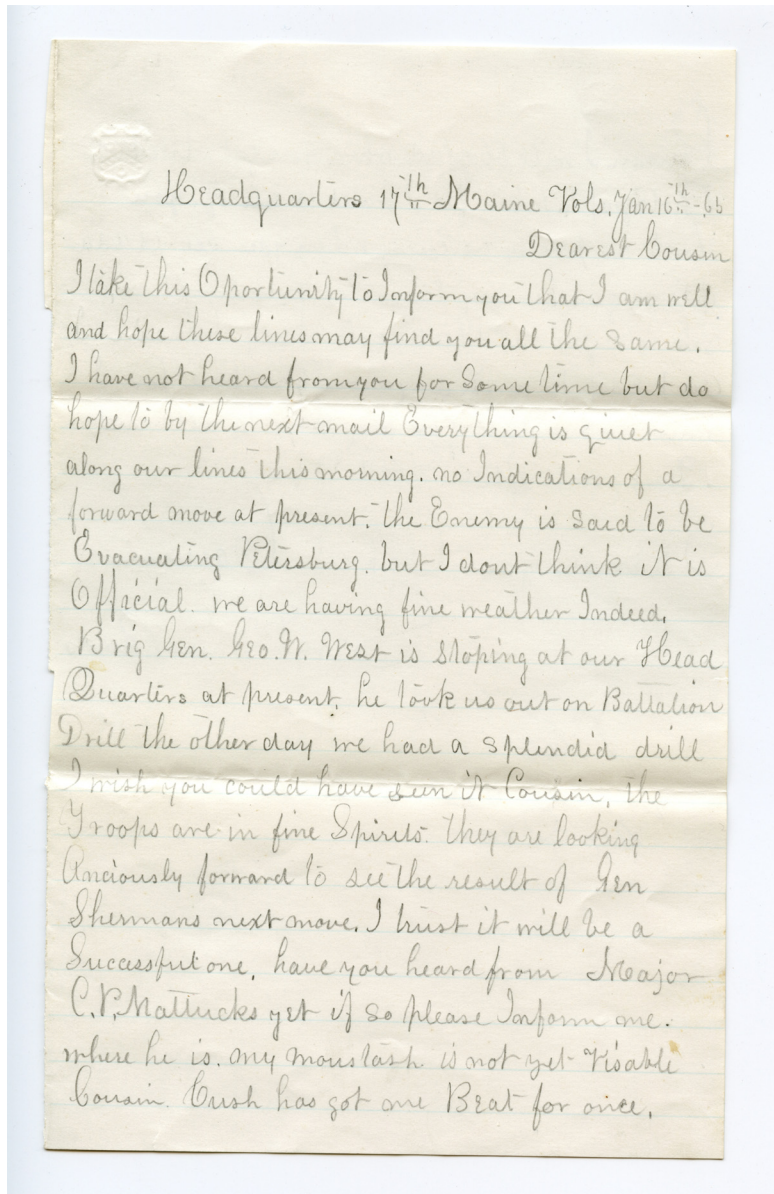 Headquarters 17th Maine Vols. Jan 16th -65
Dearest Cousin
I take this Oportunity to Inform you that I am well
and hope these lines may find you all the same.
I have not heard from you for Some time but do
hope to by the next mail Everything is quiet
along our lines this morning. no Indications of a
forward move at present. the Enemy is said to be
Evacuating Petersburg. but I dont think it is
Official. we are having fine weather Indeed.
Brig Gen. Geo. W. West is stoping at our Head
Quarters at present. he took us out on Battalion
Drill the other day we had a splendid drill
I wish you could have seen it Cousin, the
Troops are in fine Spirits. they are looking
Anciously forward to see the result of Gen
Shermans next move. I trust it will be a
Sucassful one. have you heard from Major
C. P. Mattucks yet if so please Inform me.
where he is. my moustash is not yet Visable
Cousin. Cush has got me Beat for once.